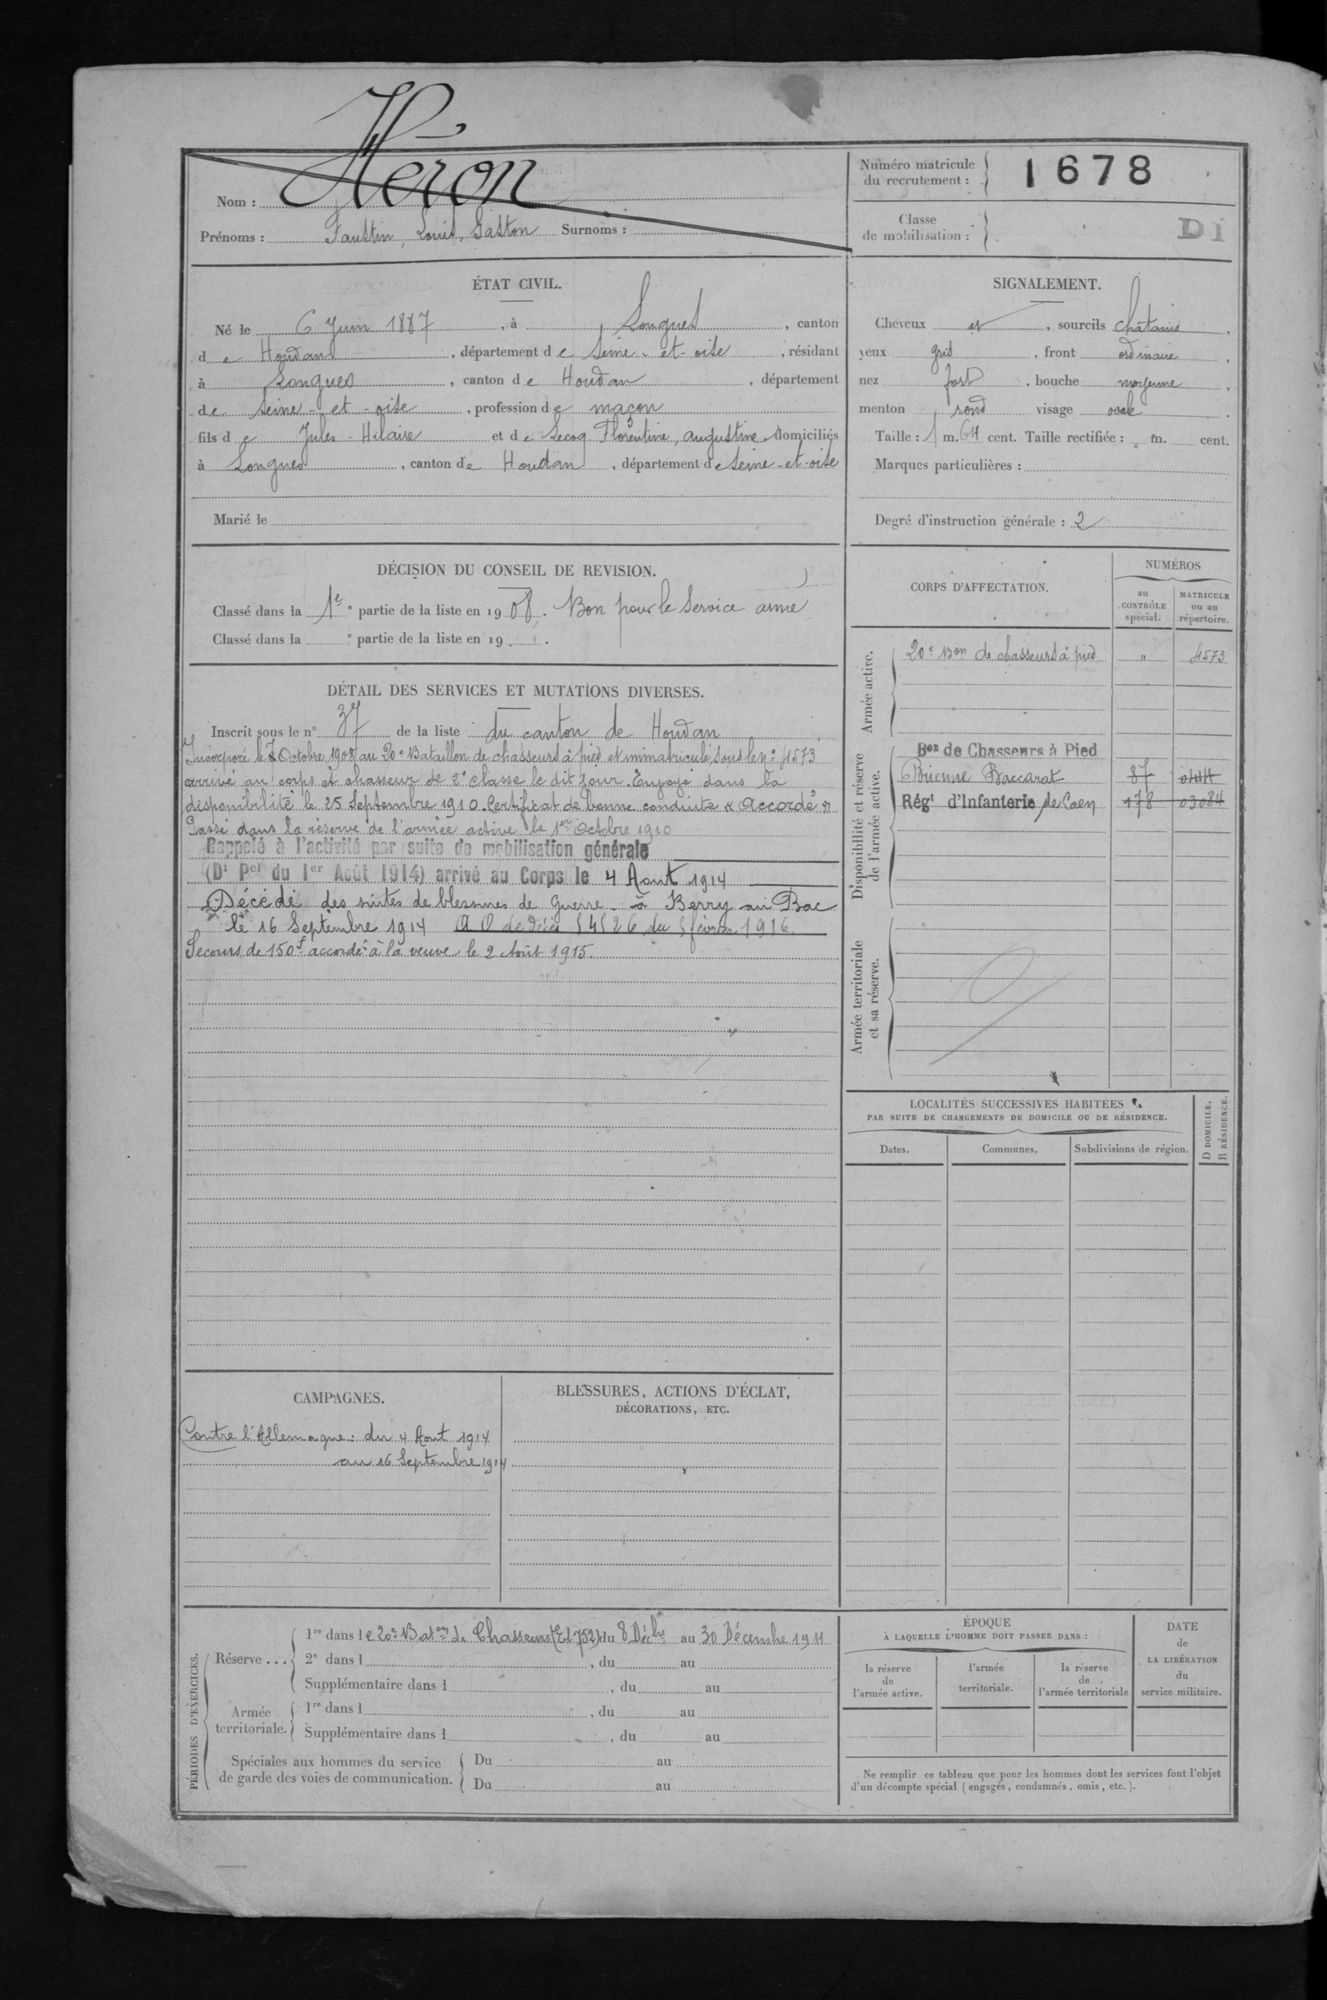 Nom : Héron
Prénoms : Faustin, Louis, Gaston Surnoms :
Numéro matricule
du recrutement : 1678
Classe
de mobilisation :
Di
ÉTAT CIVIL.
Né le 6 Juin 1887, à Longnes, canton
de Houdan, département de Seine-et-oise, résidant
à Longnes, canton de Houdan, département
de Seine-et-oise, profession de maçon
fils de Jules Hilaire et de Lecoq Florentine, augustine domiciliés
à Longnes, canton de Houdan, département de Seine-et-oise
Marié le
SIGNALEMENT.
Cheveux et, sourcils châtains
yeux gris, front ordinaire
nez fort, bouche moyenne
menton rond visage ovale
Taille : 1 m. 64 cent. Taille rectifiée : m. cent.
Marques particulières :
Degré d'instruction générale : 2
DÉCISION DU CONSEIL DE REVISION.
Classé dans la 1e partie de la liste en 1908. Bon pour le Service armé
Classé dans la e partie de la liste en 19 .
DÉTAIL DES SERVICES ET MUTATIONS DIVERSES.
Inscrit sous le n° 37 de la liste du canton de Houdan
Incorporé le 7 Octobre 1908 au 20e Bataillon de chasseurs à pied et immatriculé sous le n° 4573
arrivé au corps et chasseur de 2e classe le dit jour. Envoyé dans la
disponibilité le 25 Septembre 1910. Certificat de bonne conduite « Accordé »
Passé dans la réserve de l'armée active le 1er Octobre 1910
Rappelé à l'activité par suite de mobilisation générale
(Dt Pel du 1er Août 1914) arrivé au Corps le 4 Aout 1914
Décédé des suites de blessures de Guerre - à Berry au Bac
le 16 Septembre 1914 A O de décès 54526 du 5 février 1916.
Secours de 150f accordé à la veuve le 2 Août 1915.
CORPS D'AFFECTATION.
NUMÉROS
au
CONTRÔLE
spécial.
MATRICULE
ou au
répertoire.
Armée active.
20e Bon de chasseurs à pied " 4573
Disponibilité et réserve
de l'armée active.
Bon de Chasseurs à Pied
Brienne Baccarat 87
Régt d'Infanterie de Caen 178 03084
Armée territoriale
et sa réserve.
LOCALITÉS SUCCESSIVES HABITÉES
PAR SUITE DE CHANGEMENTS DE DOMICILE OU DE RÉSIDENCE.
Dates. Communes. Subdivisions de région.
D DOMICILE.
R RÉSIDENCE.
CAMPAGNES.
Contre l'Allemagne : du 4 Aout 1914
au 16 Septembre 1914
BLESSURES, ACTIONS D'ÉCLAT,
DÉCORATIONS, ETC.
PÉRIODES D'EXERCICES.
Réserve ...
1re dans le 20e Baton de Chasseurs (Et 752) du 8 Décbre au 30 Décembre 1911
2e dans l , du au
Supplémentaire dans l , du au
Armée
territoriale.
1re dans l , du au
Supplémentaire dans l , du au
Spéciales aux hommes du service
de garde des voies de communication.
Du au
Du au
ÉPOQUE
À LAQUELLE L'HOMME DOIT PASSER DANS :
la réserve
de
l'armée active.
l'armée
territoriale.
la réserve
de
l'armée territoriale
DATE
de
LA LIBÉRATION
du
service militaire.
Ne remplir ce tableau que pour les hommes dont les services font l'objet
d'un décompte spécial (engagés, condamnés, omis, etc.).